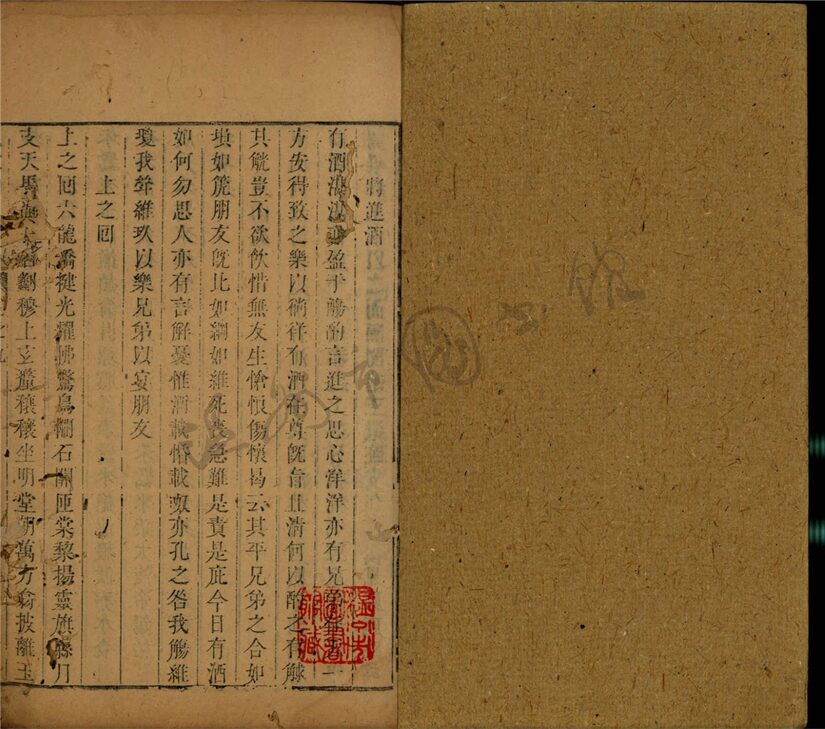 將進酒
有酒 盈于觴酌言進之思心洋洋亦有兄弟 一
方安得致之樂以徜徉有酒在尊旣旨且清何以酌之有觩
其觥豈不欲飮惜無友生愴悢傷懷曷云其平兄弟之合如
塤如篪朋友旣比如綱如維死喪急難是責是庇今日有酒
如何勿思人亦有言解憂惟酒載惛載 亦孔之咎我觴維
瓊我斝維玖以樂兄弟以宴朋友
上之回
上之回六龍 揵光耀怫驚鳥 石關匝棠黎揚靈旗 月
支天馬 穆上玄 穰穰坐明堂朝萬方 披離玉